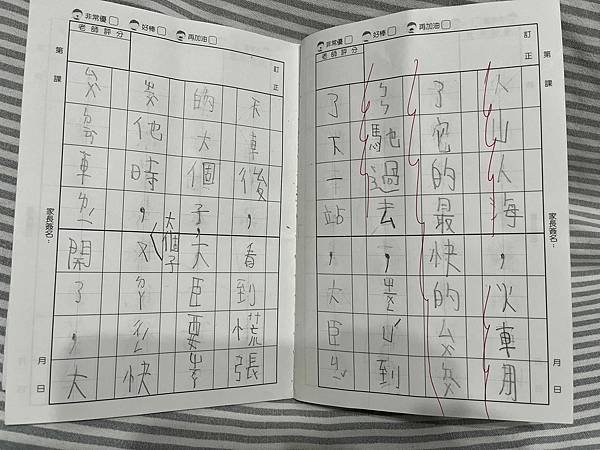 非常優 好棒 再加油
老師評分
訂正
第 課
家長簽名：
月 日
人山人海，火車用
了它的最快的ㄙㄨ
馳過去，到
了下一站，大臣
非常優 好棒 再加油
老師評分
訂正
第 課
家長簽名：
月 日
下車後，看到慌張
的大個子，大臣要
大個子
他時，快
車開了，大